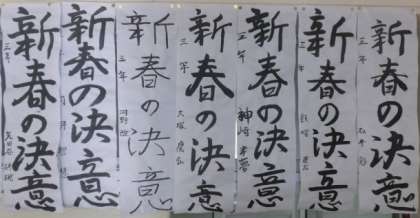 新春の決意
三年
新春の決意
新春の決意
三年
河野
新春の決意
三年
大塚
新春の決意
三年
神崎
新春の決意
三年
新春の決意
三年